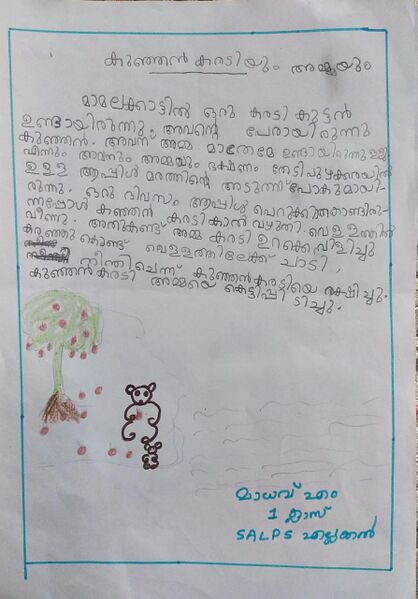 കുഞ്ഞൻ കരടിയും അമ്മയും
മാമലക്കാട്ടിൽ ഒരു കരടി കുട്ടൻ
ഉണ്ടായിരുന്നു. അവന്റെ പേരായിരുന്നു
കുഞ്ഞൻ. അവന് അമ്മ മാത്രമേ ഉണ്ടായിരുന്നുള്ളു
എന്നും അവനും അമ്മയും ഭക്ഷണം തേടി പുഴക്കരയിൽ
ഉള്ള ആപ്പിൾ മരത്തിന്റെ അടുത്ത് പോകുമായി
രുന്നു. ഒരു ദിവസം ആപ്പിൾ പെറുക്കി
ന്നപ്പോൾ കുഞ്ഞൻ കരടി കാൽ വഴുതി വെള്ളത്തിൽ
വീണു. അതുകണ്ട് അമ്മ കരടി ഉറക്കെ വിളിച്ചു
കരഞ്ഞു കൊണ്ട് വെള്ളത്തിലേക്ക് ചാടി,
നീന്തി ചെന്ന് കുഞ്ഞൻകരടിയെ രക്ഷിച്ചു.
കുഞ്ഞൻകരടി അമ്മയെ കെട്ടിപ്പി ടിച്ചു.
മാധവ് എം
1 ക്ലാസ്
SALPS